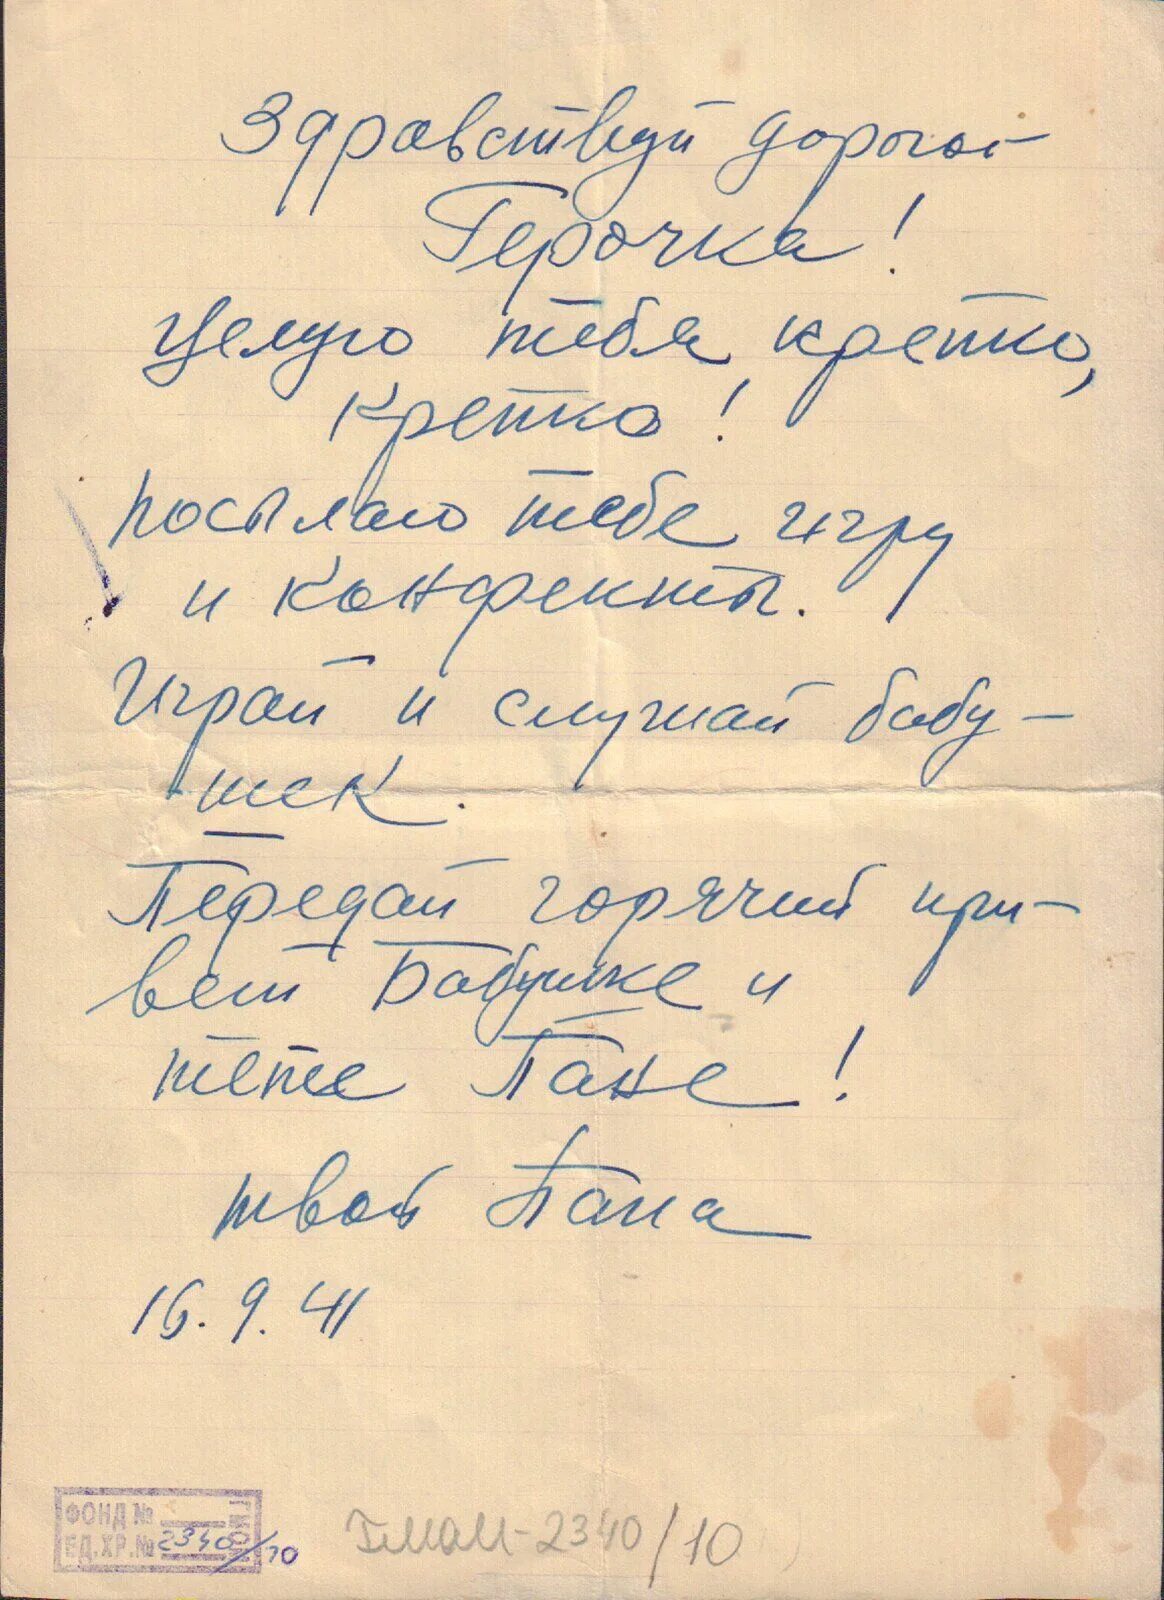 Здравствуй дорогой
Герочка!
Целую тебя крепко,
крепко!
Посылаю тебе игру
и конфекты.
Играй и слушай бабу-
шек.
Передай горячий при-
вет Бабушке и
тёте Пане!
твой Папа
16.9.41
ФОНД №
ЕД.ХР.№ 2340/10
ГМОМ-2340/10